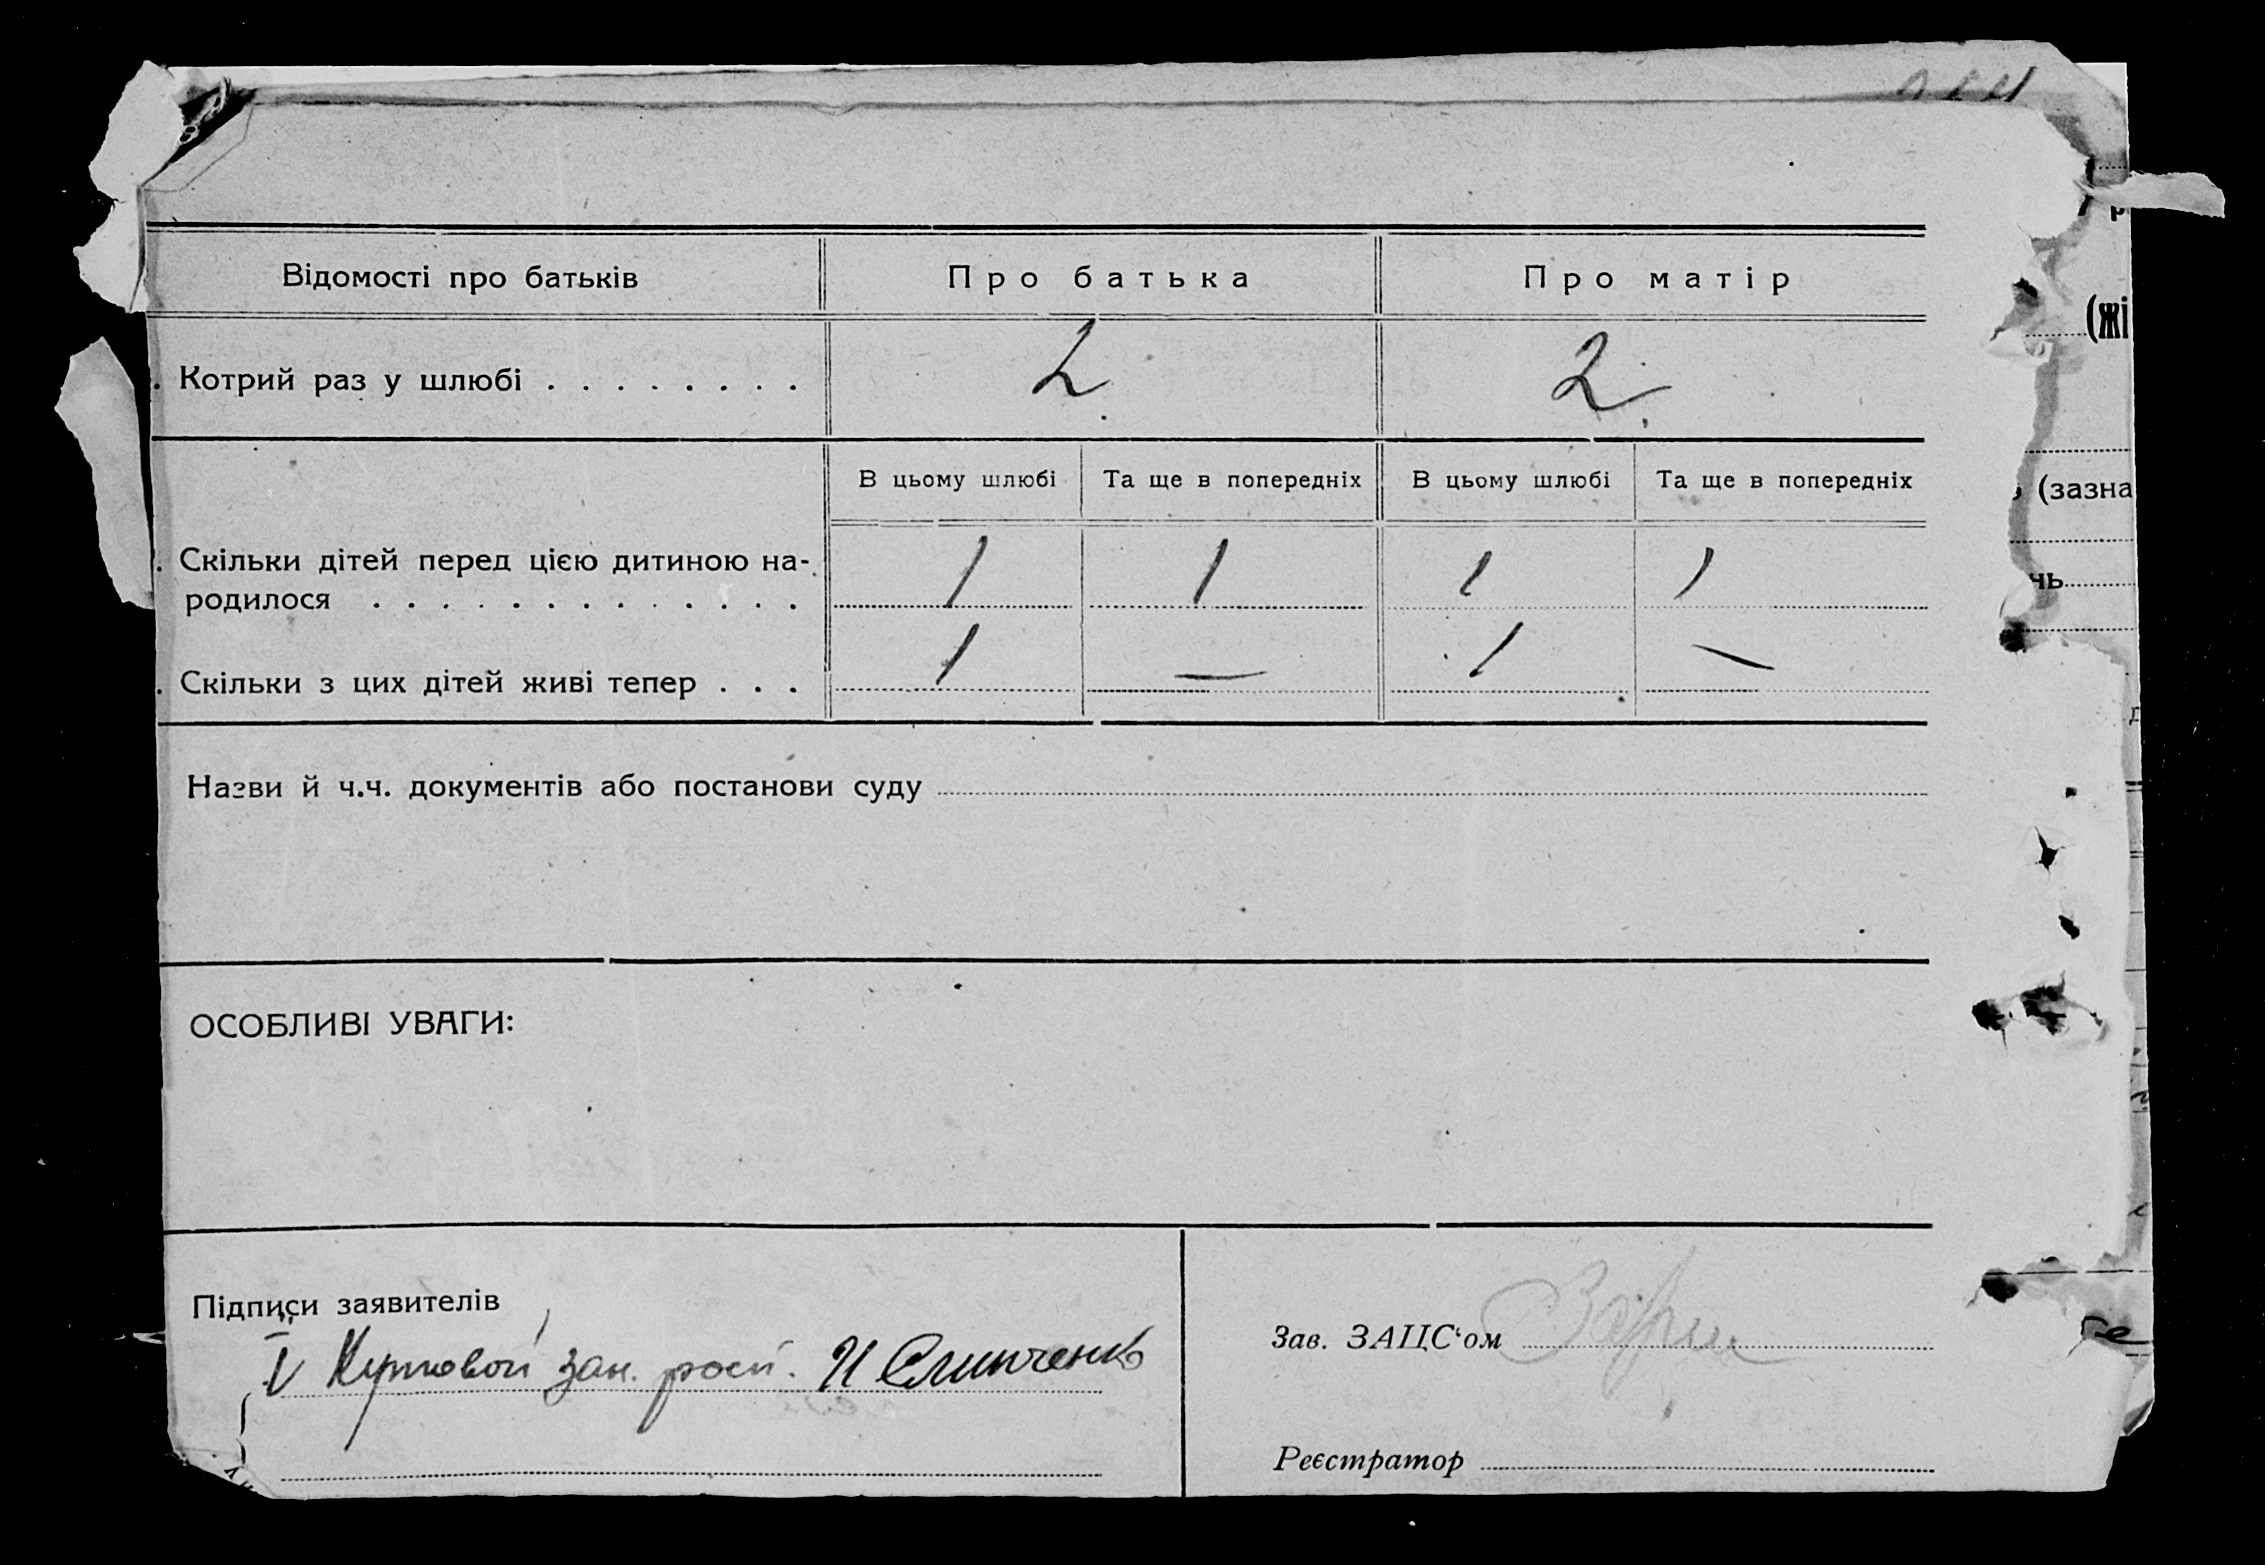 Відомості про батьків
Про батька
Про матір
Котрий раз у шлюбі . . . . . . . .
2
2.
В цьому шлюбі
Та ще в попередніх
В цьому шлюбі
Та ще в попередніх
Скільки дітей перед цією дитиною на-
родилося . . . . . . . . . . . . .
1
1
1
1
Скільки з цих дітей живі тепер . . .
1
—
1
—
Назви й ч.ч. документів або постанови суду
ОСОБЛИВІ УВАГИ:
Підписи заявителів
зан. росп.
Зав. ЗАЦС‘ом
Реєстратор
(жі
(зазна
чь